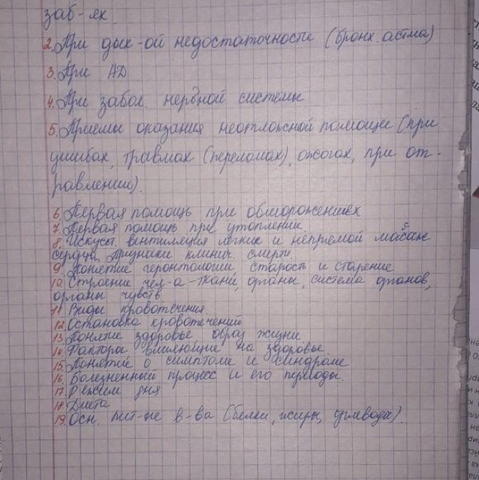 заб-ях
2. При дых-ой недостаточности (бронх. астма)
3. При АД
4. При забол. нервной системы
5. Приемы оказания неотложной помощи (при
ушибах, травмах (переломах), ожогах, при от-
равлении).
6. Первая помощь при обморожениях
7. Первая помощь при утоплении
8. Искуст. вентиляция легких и непрямой массаж
сердца. Признаки клинич. смерти
9. Понятие геронтологии, старость и старение
10. Строение чел-а - ткани, органы, система органов,
органы чувств
11. Виды кровотечения
12. Остановка кровотечений
13. Понятие здоровье, образ жизни
14. Факторы влияющие на здоровье
15. Понятие о симптоме и синдроме
16. Болезненный процесс и его периоды
17. Режим дня
18. Диета
19. Осн. пит-ые в-ва (белки, жиры, углеводы).